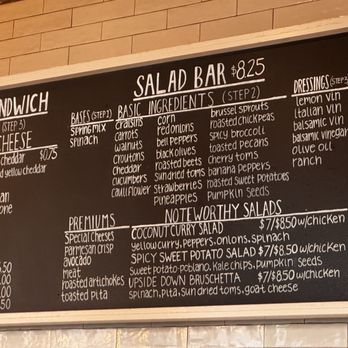 SALAD BAR $8.25
NDWICH
(STEP 3)
CHEESE
cheddar $0.75
d yellow cheddar
one
BASES (STEP 1)
Spring mix
spinach
BASIC INGREDIENTS (STEP 2)
craisins
carrots
walnuts
croutons
cheddar
cucumbers
cauliflower
corn
red onions
bell peppers
black olives
roasted beets
sundried toms
strawberries
pineapples
brussel sprouts
roasted chickpeas
spicy broccoli
toasted pecans
cherry toms
banana peppers
roasted sweet potatoes
Pumpkin seeds
DRESSINGS (STEP 3)
lemon vin
italian vin
balsamic vin
balsamic vinegar
olive oil
ranch
PREMIUMS
Special cheeses
parmesan crisp
avocado
meat
roasted artichokes
toasted pita
NOTEWORTHY SALADS
COCONUT CURRY SALAD $7/$8.50 w/chicken
yellow curry, peppers, onions, spinach
SPICY SWEET POTATO SALAD $7/$8.50 w/chicken
sweet potato, poblano, Kale chips, pumpkin seeds
UPSIDE DOWN BRUSCHETTA $7/$8.50 w/chicken
spinach, pita, sun dried toms, goat cheese